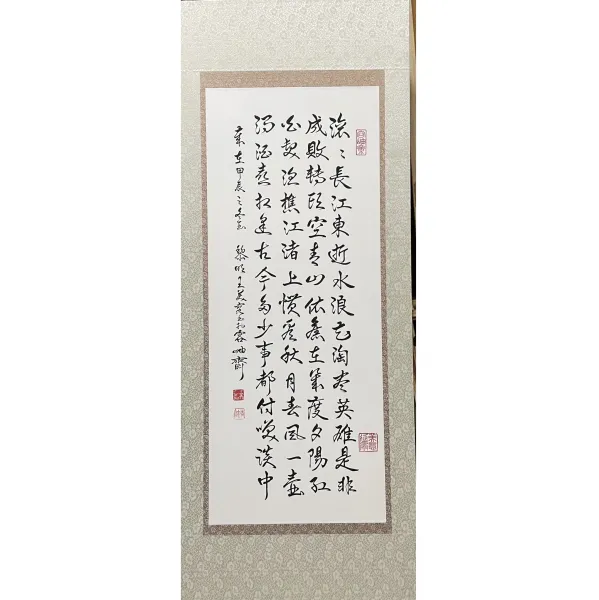 滚〻長江東逝水浪花淘尽英雄是非
成敗轉頭空青山依舊在幾度夕陽红
白髮渔樵江渚上惯看秋月春風一壶
濁酒喜相逢古今多少事都付笑談中
歲在甲辰之冬 黎明